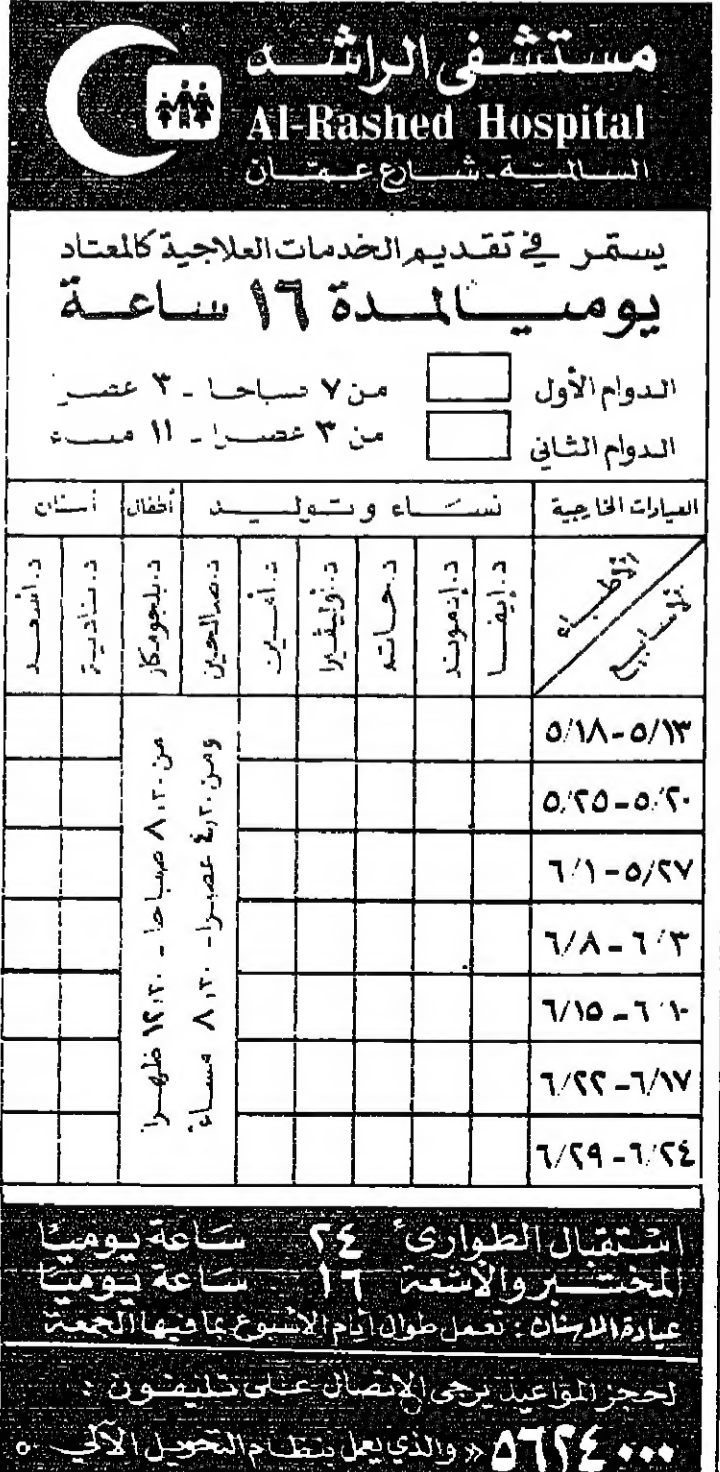 مستشفى الراشد
Al-Rashed Hospital
السالمية - شارع عمان
يستمر في تقديم الخدمات العلاجية كالمعتاد
يوميا لمدة ١٦ ساعة
الدوام الأول من ٧ صباحا - ٣ عصرا
الدوام الثاني من ٣ عصرا - ١١ مساء
العيادات الخارجية نساء وتوليد أطفال أسنان
الأطباء
الأسابيع
د. إيفا
د. إدموند
د. حاتم
د. أوليفيرا
د. أمين
د. صالحين
د. بلجومكار
د. نادية
د. اسعد
٥/١٣ - ٥/١٨
٥/٢٠ - ٥/٢٥
٥/٢٧ - ٦/١
٦/٣ - ٦/٨
٦/١٠ - ٦/١٥
٦/١٧ - ٦/٢٢
٦/٢٤ - ٦/٢٩
من ٨,٣٠ صباحا - ١٢,٣٠ ظهرا
ومن ٤,٣٠ عصرا - ٨,٣٠ مساء
استقبال الطوارئ ٢٤ ساعة يوميا
المختبر والأشعة ١٦ ساعة يوميا
عيادة الاسنان : تعمل طوال أيام الأسبوع بما فيها الجمعة
لحجز المواعيد يرجى الإتصال على تليفون :
٥٦٢٤٠٠٠ « والذي يعمل بنظام التحويل الآلي